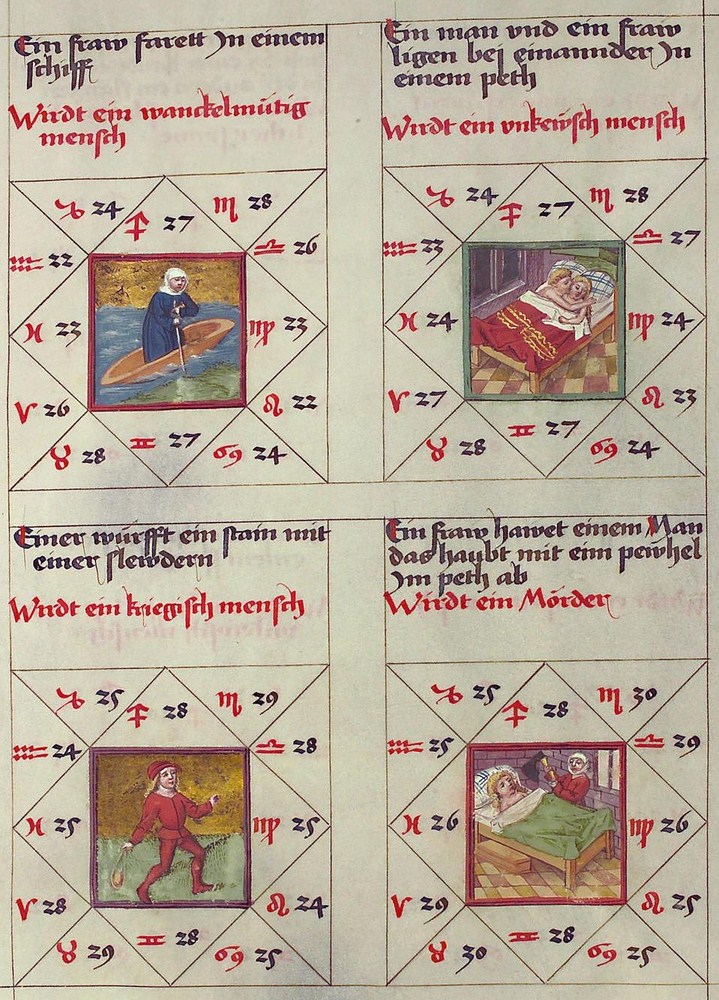 Ein fraw farett Jn einem
schiff
Wirdt ein wanckelmütig
mensch
♑ 24 ♐ 27 ♏ 28
♒ 22 ♎ 26
♓ 23 ♍ 23
♈ 26 ♌ 22
♉ 28 ♊ 27 ♋ 24
Ein man vnd ein fraw
ligen bej einannder Jn
einem peth
Wirdt ein vnkewsch mensch
♑ 24 ♐ 27 ♏ 28
♒ 23 ♎ 27
♓ 24 ♍ 24
♈ 27 ♌ 23
♉ 28 ♊ 27 ♋ 24
Einer würfft ein stain mit
einer slewdern
Wirdt ein kriegisch mensch
♑ 25 ♐ 28 ♏ 29
♒ 24 ♎ 28
♓ 25 ♍ 25
♈ 28 ♌ 24
♉ 29 ♊ 28 ♋ 25
Ein fraw hawet einem Man
das haubt mit eim pewhel
Jm peth ab
Wirdt ein Mörder
♑ 25 ♐ 28 ♏ 30
♒ 25 ♎ 29
♓ 26 ♍ 26
♈ 29 ♌ 25
♉ 30 ♊ 28 ♋ 25